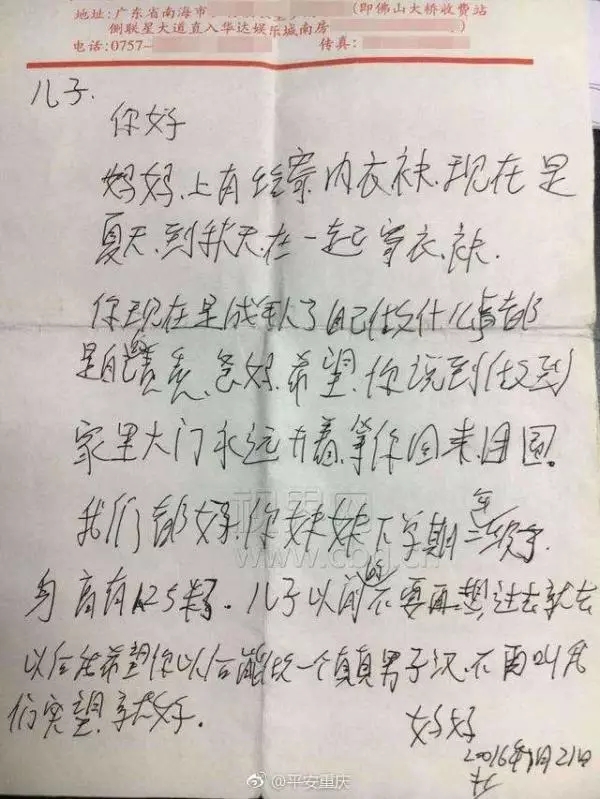 地址:广东省南海市 (即佛山大桥收费站
侧联星大道直入华达娱乐城南房 )
电话:0757- 传真:
儿子.
你好
妈妈.上有给寄内衣袜.现在是
夏天.到秋天.在一起寄衣.袜.
你现在是成年人了自己做什么事都
是自己负责.爸妈.希望.你说到做到
家里大门永远开着.等你回来团圆。
我们都好.你妹妹下学期三年级了.
身高有1.25米了.儿子以前的不要再想过去就去
以后我希望你以后能做一个真真男子汉.不要叫我
们失望就好.
妈妈
2016年 月21日
视界网
www.cbg.cn
@平安重庆